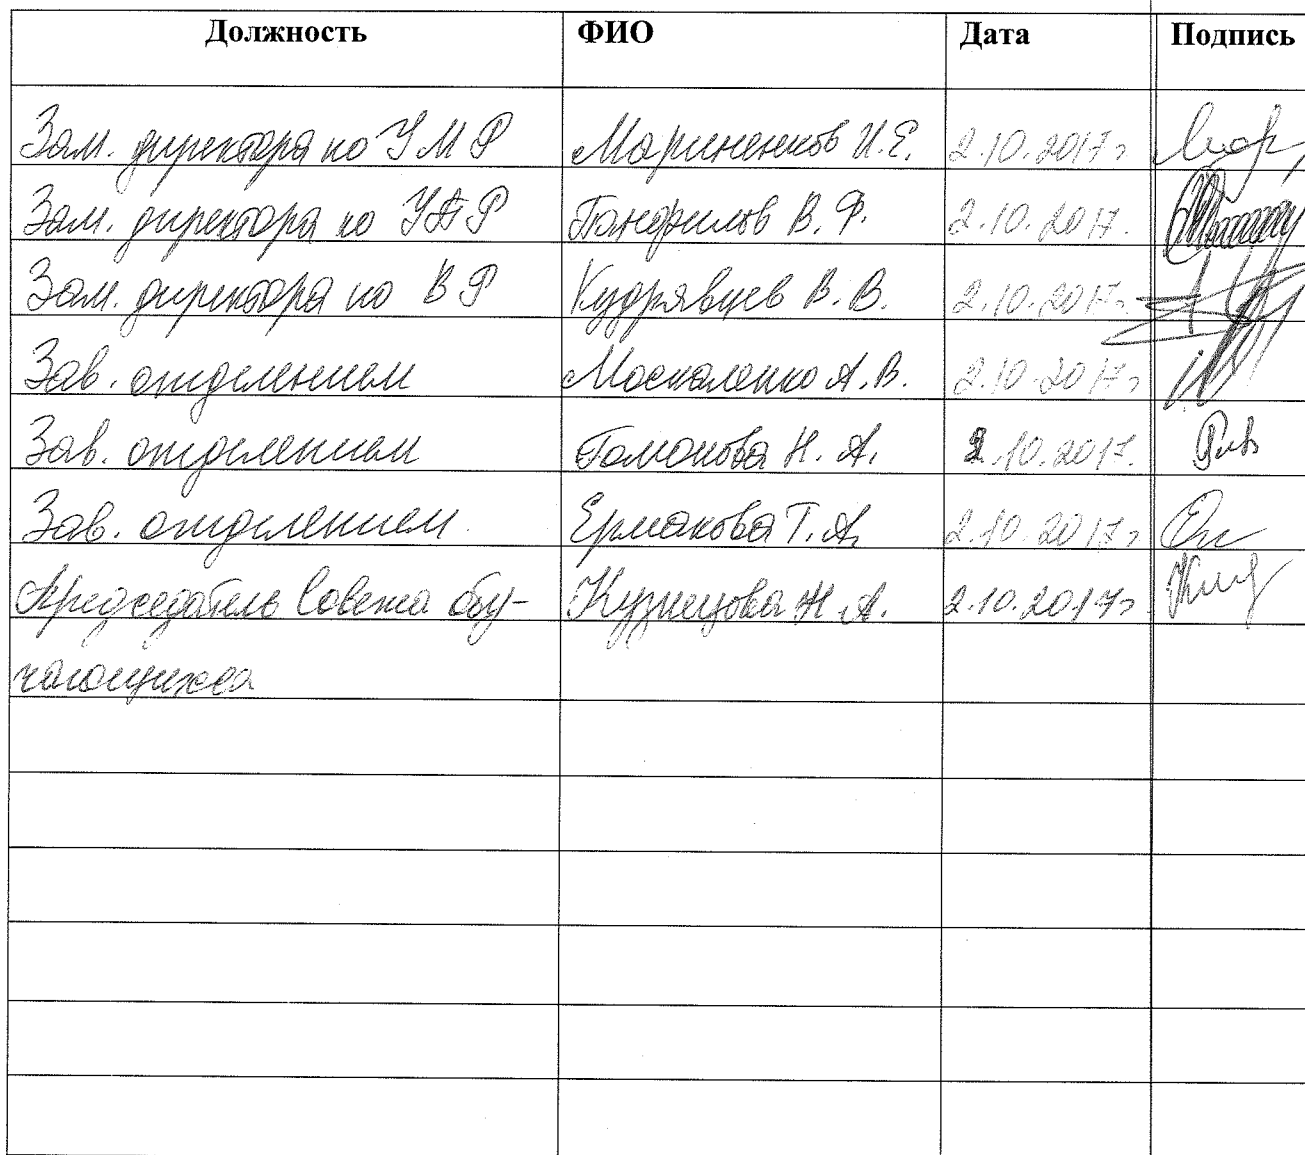 Должность ФИО Дата Подпись
Зам. директора по УМР Мариненков И.Е. 2.10.2017г
Зам. директора по УПР Панфилов В.Ф. 2.10.2017.
Зам. директора по ВР Кудрявцев В.В. 2.10.2017г
Зав. отделением Москаленко А.В. 2.10.2017г
Зав. отделением Гомонова Н.А. 2.10.2017.
Зав. отделением. Ермакова Т.А. 2.10.2017г
Председатель Совета обу- Кузнецова Н.А. 2.10.2017г
чающихся